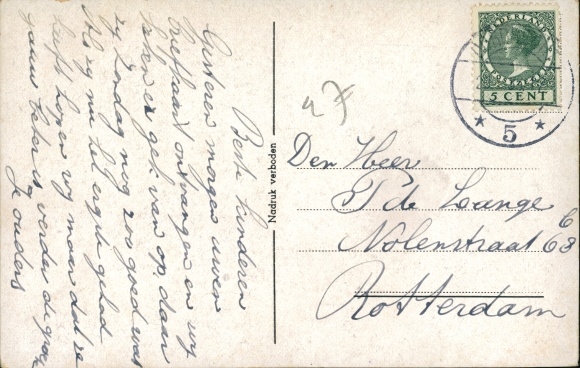 Beste kinderen
Gisteren morgen uwen
briefkaart ontvangen en wy
keken er gek van op daar
zy Zondag nog zoo goed was
Als zy nu let ergste gehad
heeft hopen wy maar dat ze
gauw beter is verder de groe
Je ouders
Nadruk verboden
47
NEDERLAND
5 CENT
* 5 *
Den Heer
P de Lange
Nolenstraat 68
6
Rotterdam